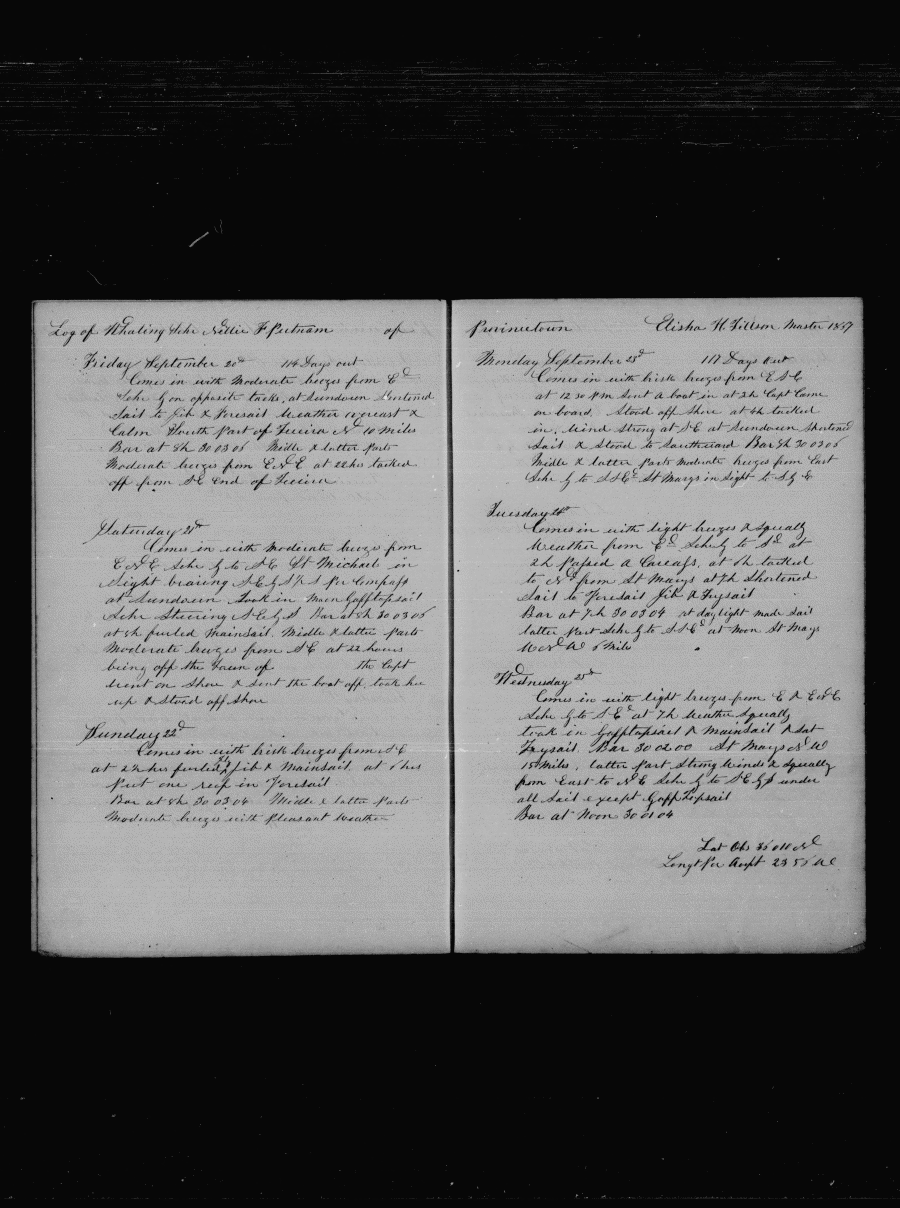 Log of Whaling Schr Nellie F Putnam of
Friday September 20th 114 Days out
Comes in with Moderate breezes from Ed
Schr by on opposite tacks. at Sundown Shortened
Sail to Jib & Foresail Weather overcast &
Calm South Part of Terceira N 10 Miles
Bar at 8h 30 03 05 Midle & latter Parts
Moderate breezes from ENE at 22 hrs tacked
off from SE End of Terceira
Saturday 21st
Comes in with Moderate breezes from
ENE Schr by to SE St Michael in
Sight bearing SE by S ½ S Per Compass
at Sundown Took in Main Gafftopsail
Schr Steering SE by S Bar at 8h 30 03 05
at 8h furled Mainsail. Midle & latter Parts
Moderate breezes from SE at 22 hours
being off the Town of the Capt
went on Shore & sent the boat off, took her
up & stood off Shore
Sunday 22d
Comes in with brisk breezes from SE
at 2½ hrs furled Jib & Mainsail. at 6 hrs
Put one reef in Foresail
Bar at 8h 30 03 04 Midle & latter Parts
Moderate breezes with Pleasant Weather
Provincetown Elisha H. Tillson Master
Monday September 23d 117 Days out
Comes in with brisk breezes from ESE
at 12 30 PM Sent a boat in at 2h Capt Came
on board. Stood off Shore at 4h tacked
in. Wind Strong at SE at Sundown Shortened
Sail & Stood to Southward Bar 8h 30 03 05
Midle & latter Parts Moderate breezes from East
Schr by to SSEd St Marys in Sight to
Tuesday 24th
Comes in with light breezes & Squally
Weather from Ed Schr by to Sd at
2h Passed a Carcass, at 6h tacked
to Nd from St Marys at 7h Shortened
Sail to Foresail Jib & Trysail
Bar at 7h 30 03 04 at daylight made Sail
latter Part Schr by to SSEd at Noon St Marys
WNW 6 Miles
Wednesday 25th
Comes in with light breezes from E & ENE
Schr by to SEd at 7h Weather Squally
took in Gafftopsail & Mainsail & Set
Trysail. Bar 30 02 00 St Marys NW
15 Miles, latter Part Strong Winds & Squally
from East to NE Schr by to SE by S under
all Sail except GaffTopsail
Bar at Noon 30 01 04
Lat Obs N
Longt Per Acupt W